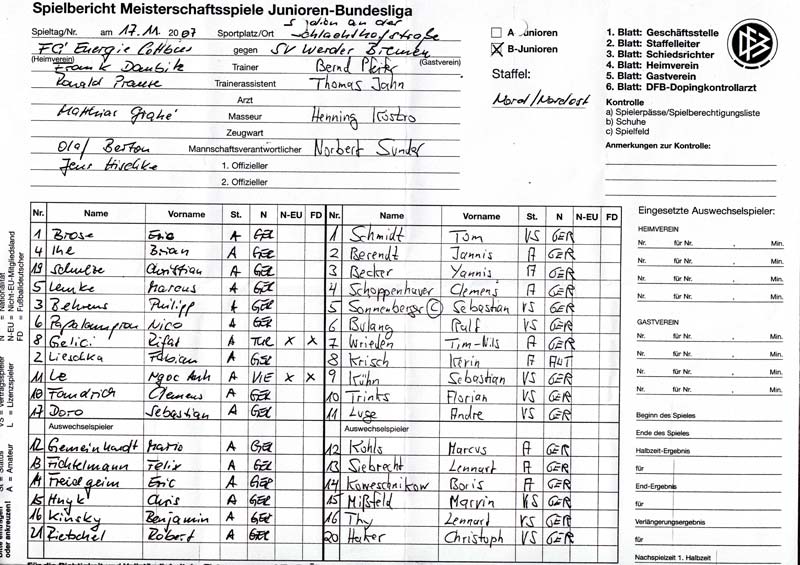 Spielbericht Meisterschaftsspiele Junioren-Bundesliga
Spieltag/Nr. am 17.11. 2007 Sportplatz/Ort Stadion an der Schlachthofstraße
FC Energie Cottbus gegen SV Werder Bremen
(Heimverein) (Gastverein)
Frank Trainer Bernd
Ronald Trainerassistent Thomas Jahn
Arzt
Matthias Masseur Henning
Zeugwart
Olaf Mannschaftsverantwortlicher Norbert Sunder
Jens Hischke 1. Offizieller
2. Offizieller
A Junioren
B-Junioren
Staffel:
Nord/Nordost
1. Blatt: Geschäftsstelle
2. Blatt: Staffelleiter
3. Blatt: Schiedsrichter
4. Blatt: Heimverein
5. Blatt: Gastverein
6. Blatt: DFB-Dopingkontrollarzt
DFB
Kontrolle
a) Spielerpässe/Spielberechtigungsliste
b) Schuhe
c) Spielfeld
Anmerkungen zur Kontrolle:
Nr. Name Vorname St. N N-EU FD Nr. Name Vorname St. N N-EU FD
1 Brose Eric A GER 1 Schmidt Tom VS GER
4 Ihe Brian A GER 2 Berendt Jannis A GER
19 Schulze Christian A GER 3 Becker Yannis A GER
5 Lemke Marcus A GER 4 Schoppenhauer Clemens A GER
3 Behrens Philipp A GER 5 Sonnenberger C Sebastian VS GER
6 Nico A GER 6 Bulang Ralf VS GER
8 Gelici Rifat A TUR X X 7 Wrieden Tim-Nils A GER
2 Lieschka Fabian A GER 8 Krisch Kevin A AUT
11 Le Ngoc Anh A VIE X X 9 Kühn Sebastian VS GER
10 Fandrich Clemens A GER 10 Trinks Florian VS GER
17 Doro Sebastian A GER 11 Luge Andre VS GER
Auswechselspieler Auswechselspieler
12 Gemeinhardt Mario A GER 12 Kohls Marcus A GER
13 Fichtelmann Felix A GER 13 Siebrecht Lennart A GER
14 Eric A GER 14 Koweschnikow Boris A GER
15 Hnyk Chris A GER 15 Mißfeld Marvin VS GER
16 Kinsky Benjamin A GER 16 Thy Lennard VS GER
21 Rietschel Robert A GER 20 Haker Christoph VS GER
Eingesetzte Auswechselspieler:
HEIMVEREIN
Nr. für Nr. , Min.
Nr. für Nr. , Min.
Nr. für Nr. , Min.
Nr. für Nr. , Min.
GASTVEREIN
Nr. für Nr. , Min.
Nr. für Nr. , Min.
Nr. für Nr. , Min.
Nr. für Nr. , Min.
Beginn des Spieles
Ende des Spieles
Halbzeit-Ergebnis
für
End-Ergebnis
für
Verlängerungsergebnis
für
Nachspielzeit 1. Halbzeit
N = Nationalität
N-EU = Nicht-EU-Mitgliedsland
FD = Fußballdeutscher
VS = Vertragsspieler
L = Lizenzspieler
St. = Status
A = Amateur
oder ankreuzen!